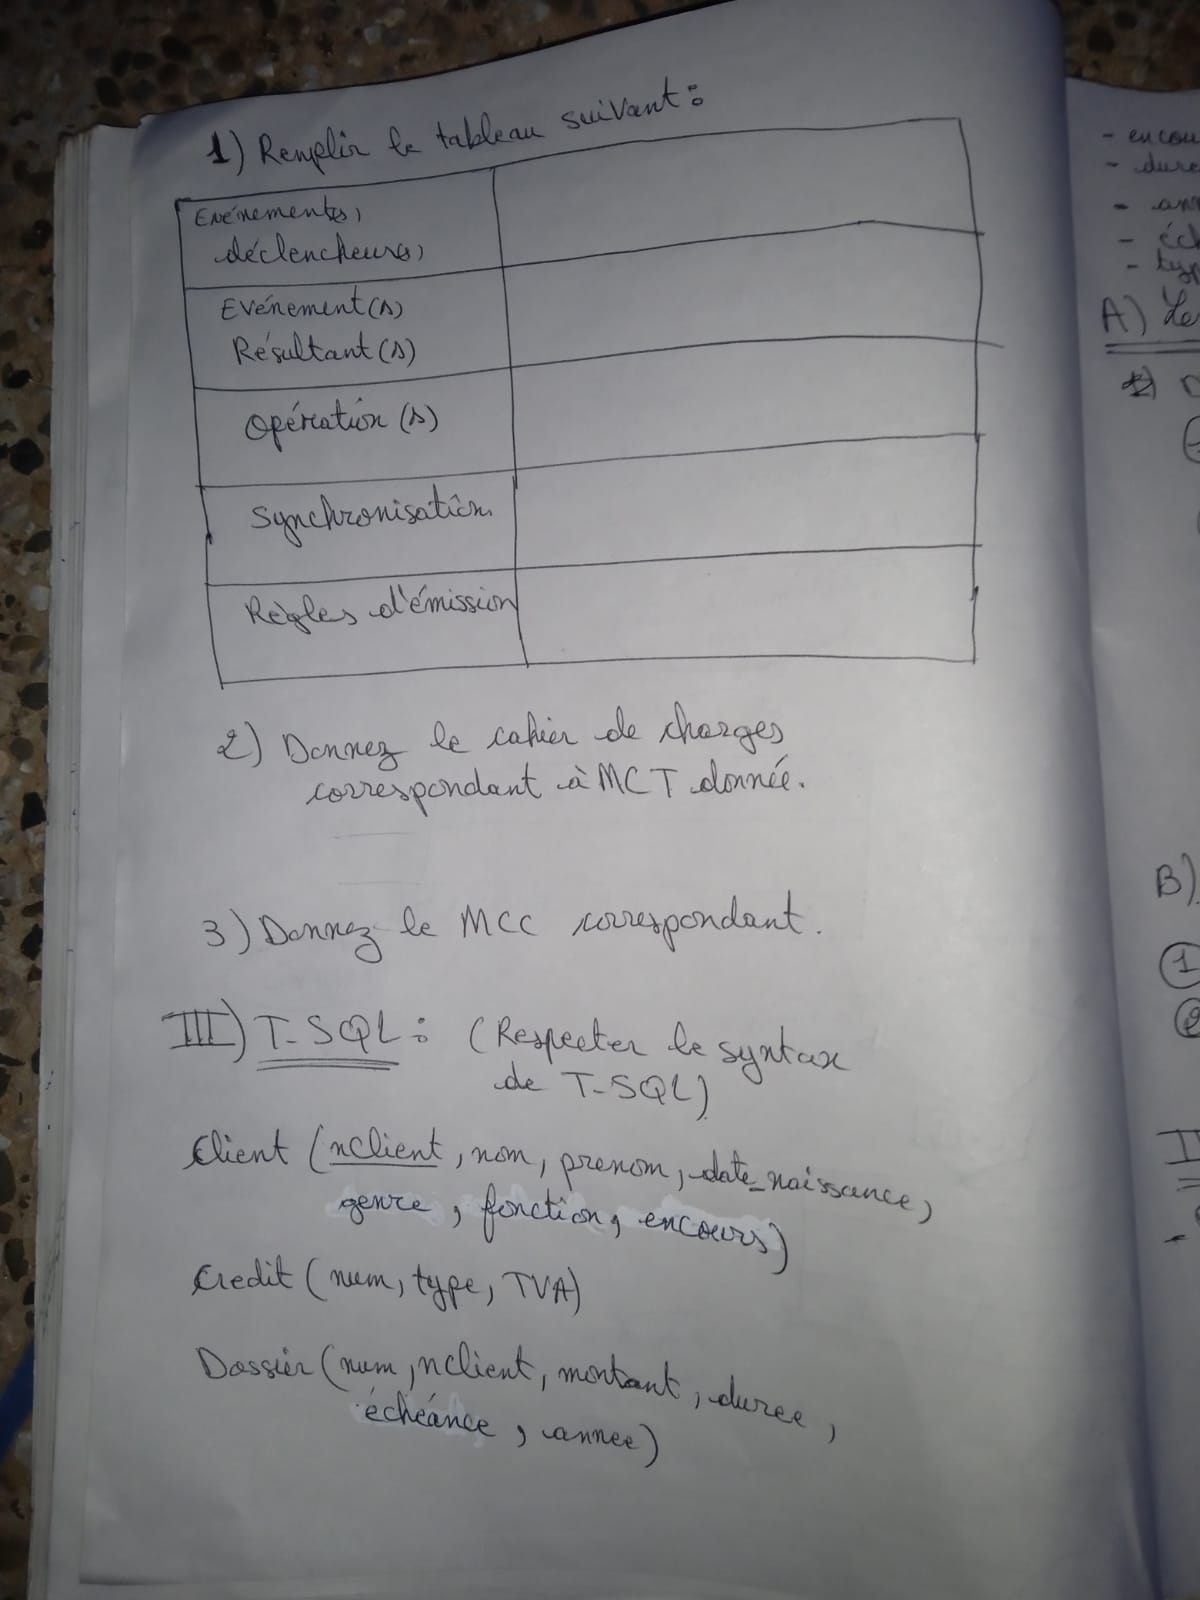 1) Remplir le tableau suivant :
Evénements,
déclencheurs,
Evénement(s)
Résultant(s)
Opération (s)
Synchronisation
Règles d'émission
2) Donnez le cahier de charges
correspondant à MCT donnée.
3) Donnez le MCC correspondant.
III) T-SQL : (Respecter le syntax
de T-SQL)
Client (nclient, nom, prenom, date_naissance,
genre, fonction, encours)
Credit (num, type, TVA)
Dossier (num, nclient, montant, duree,
échéance, annee)
- encou
- dure
- ann
- éch
- typ
A) Le
B)
1
2